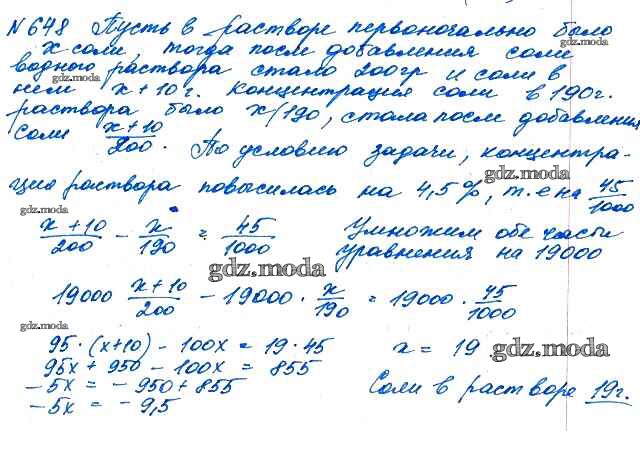 №648 Пусть в растворе первоначально было
x соли, тогда после добавления соли
водного раствора стало 200гр и соли в
нем x+10 г. Концентрация соли в 190г.
gdz.moda
gdz.moda
раствора было x/190, стала после добавления
соли (x+10)/200. По условию задачи, концентра-
gdz.moda
ция раствора повысилась на 4,5%, т.е на 45/1000
gdz.moda
gdz.moda
(x+10)/200 - x/190 = 45/1000 Умножим обе части
уравнения на 19000
gdz.moda
19000 (x+10)/200 - 19000 · x/190 = 19000 · 45/1000
gdz.moda
95·(x+10) - 100x = 19·45 x = 19
gdz.moda
95x + 950 - 100x = 855
-5x = -950+855 Соли в растворе 19г.
-5x = -9,5